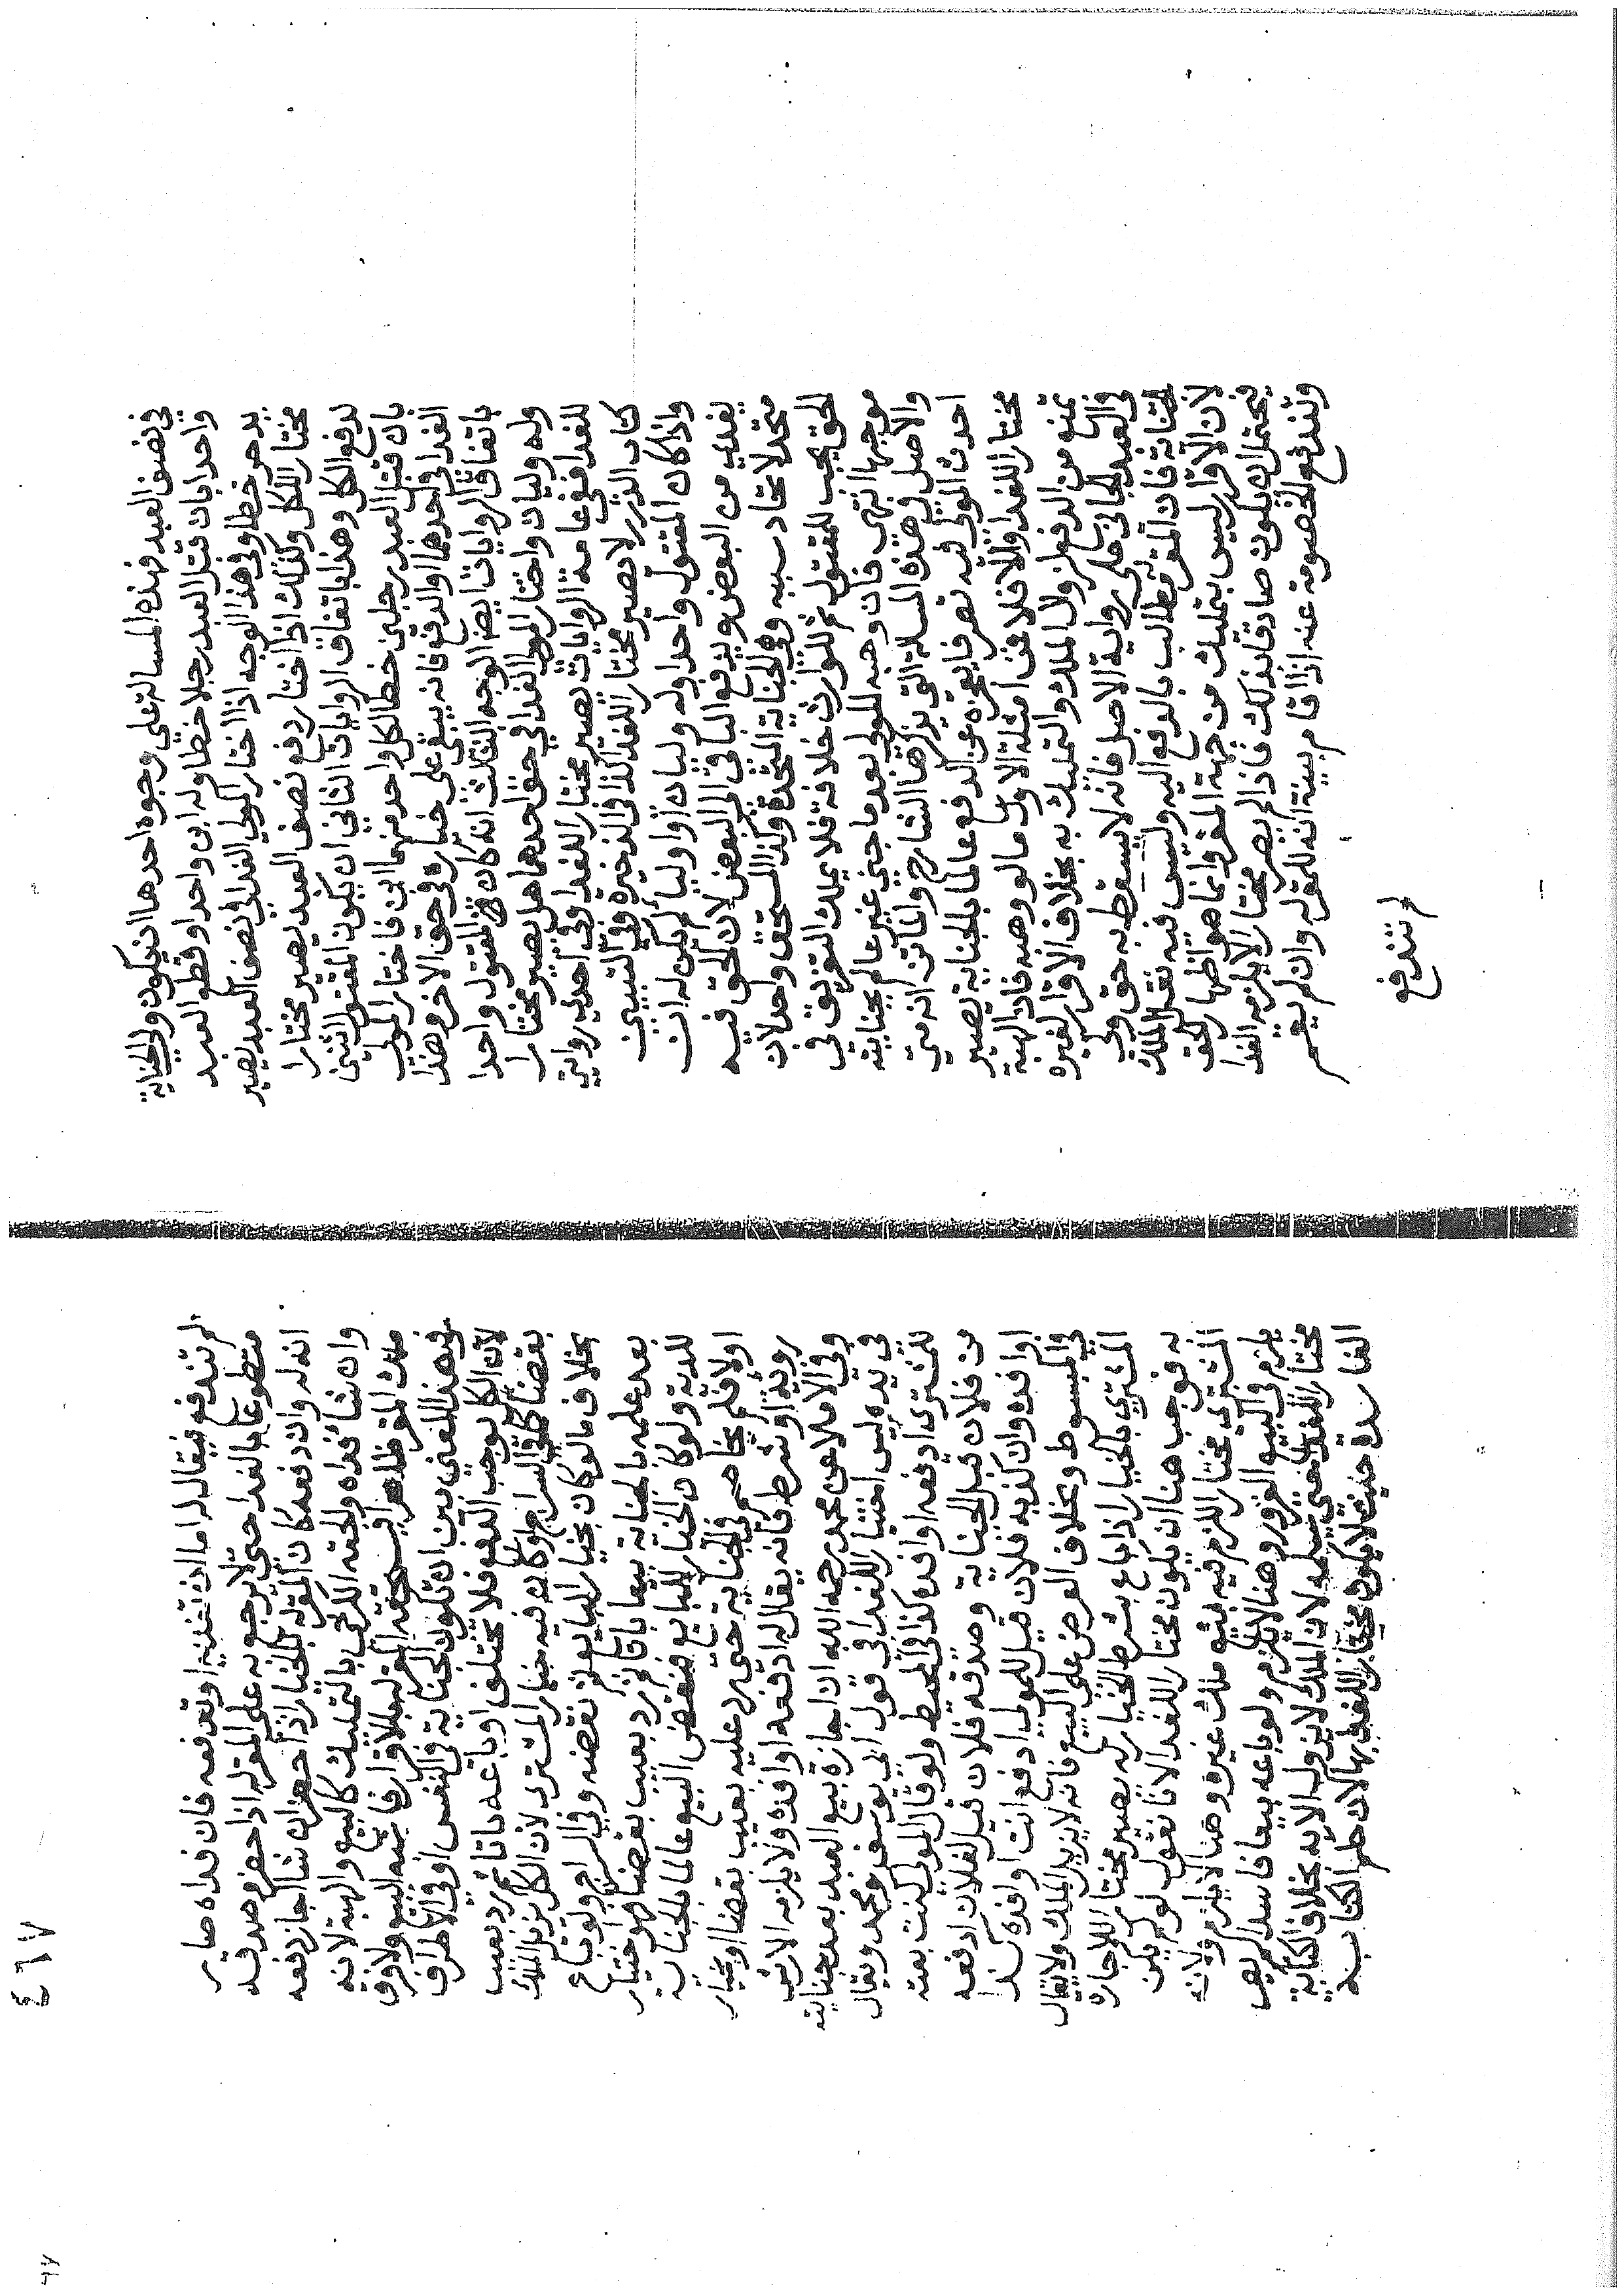 في نصف العبد فهذه المسالة على وجوه احدها ان يكون ولي الجناية
واحدا بان قتل العبد رجلا خطا وله ابن واحد او قطع العبد
يد حر خطا وفي هذا الوجه اذا اختار المولي الفدا في نصف العبد يصير
مختارا للكل وكذلك اذا اختار دفع نصف العبد يصير مختارا
لدفع الكل وهذا باتفاق الروايات الثاني ان يكون المقتول اثنين
بان قتل العبد رجلين خطا لكل واحد منهما ابن فاختار المولي
الفدا في احدهما او الدفع فانه يبقى على خياره في حق الاخر وهذا
باتفاق الروايات ايضا الوجه الثالث اذا كان المقتول واحدا
وله وليان واختار المولى الفدا في حق احدهما هل يصير مختارا
للفدا ففي عامة الروايات يصير مختارا للفدا وفي احدي روايتي
كتاب الدرر لا يصير مختارا للفدا كذا في الذخيرة وفي التبيين
واذا كان المقتول واحدا وله وليان او اولياء لم يكن له ان
يفدي من البعض ويدفع الباقي الى البعض لان الحق فيه
متحد لاتحاد سببه وهي الجناية المتحدة وكذا المستحق واحد لان
الحق يجب للمقتول ثم للوارث خلافة فلا يملك التفريق في
موجبها انتهي فان وهبه للمولي بعد ما جني غير عالم بجنايته
والاصل في هذه المسالة التي يذكرها الشارح والماتن انه متي
احدث المولي فيه تصرفا يعجزه عن الدفع عالما بالجناية يصير
مختارا للفدا والا فلا فمن امثلة الاول ما لو وهبه فان الهبة
تمنع من الدفع لزوال الملك والتمليك به بخلاف الاقرار لغيره
في العبد الجاني على رواية الاصل فانه لا يسقط به حق ولي
الجناية فان المقر له يطالب بالدفع اليه وليس فيه نقل الملك
لان الاقرار ليس بتمليك من جهة المقر وانما هو اظهار الحق
فيحتمل ان يكون صادقا بذلك فاذا لم يصر مختارا لا يلزمه الفدا
وتندفع الخصومة عنه اذا اقام بينة انه للمقر له وان لم يقم
لم تندفع
٨٦٤
لم تندفع فيقال له اما ان تفديه او تدفعه فان فداه صار
متطوعا بالفدا حتى لا يرجع به على المقر له اذا حضر وصدقه
انه له وان دفعه كان المقر له بالخيار اذا حضر ان شا اجاز دفعه
وان شا فداه والحقه الكرخي بالتمليك كالبيع والهبة لانه
ملك المقر ظاهرا فيستحقه المقر له بالاقرار فاشبه البيع ولا فرق
في هذا المعني بين ان تكون الجناية في النفس او في الاطراف
لان الكل يوجب الدفع فلا تختلف او باعه باتا ثم رد بعيب
بقضا كما في السراج او كان فيه خيار المشتري لان الكل يزيل الملك
بخلاف ما لو كان بخيار البايع ثم نقضه وفي السراج ولو باع
بعد علمه بالجناية بيعا باتا ثم رد بعيب بقضا فهو اختيار
للدية ولو كان الخيار للبايع فنقض البيع عالما بالجناية
اولا فلم يخاصم في الجناية حتى رد عليه بعيب بقضا او بخيار
روية او شرط فانه يقال له ادفعه او افده ولا يلزمه الارش
وفي الاملا عن محمد رحمه الله ان اجازة بيع العبد بعد جنايته
في يده ليس اختيارا للفدا في قول ابي يوسف ومحمد ويقال
للمشتري ادفعه او افده كذا في المحيط ولو قال المولي كنت بعته
من فلان قبل الجناية وصدقه فلان قيل لفلان ادفعه
او افده وان كذبه فلان قيل للمولي ادفع انت او افده كذا
في المبسوط وبخلاف العرض على البيع فانه لا يزيل الملك ولا يقال
المشتري بالخيار اذا باع بشرط الخيار له يصير مختارا للاجازة
به فوجب هنا ان يكون مختارا للفدا لانا نقول لو لم يكن
المشتري مختارا للزم فيه بيع ملك غيره وهنا لا يلزم ولانه
يلزم في البيع الغرور وهنا لا يلزم ولو باعه بيعا فاسدا لم يصر
مختارا للفدا حتى يسلمه لان الملك لا يزول الا به بخلاف الكتابة
الفاسدة حيث لا يكون مختارا للفدا بها لان حكم الكتابة